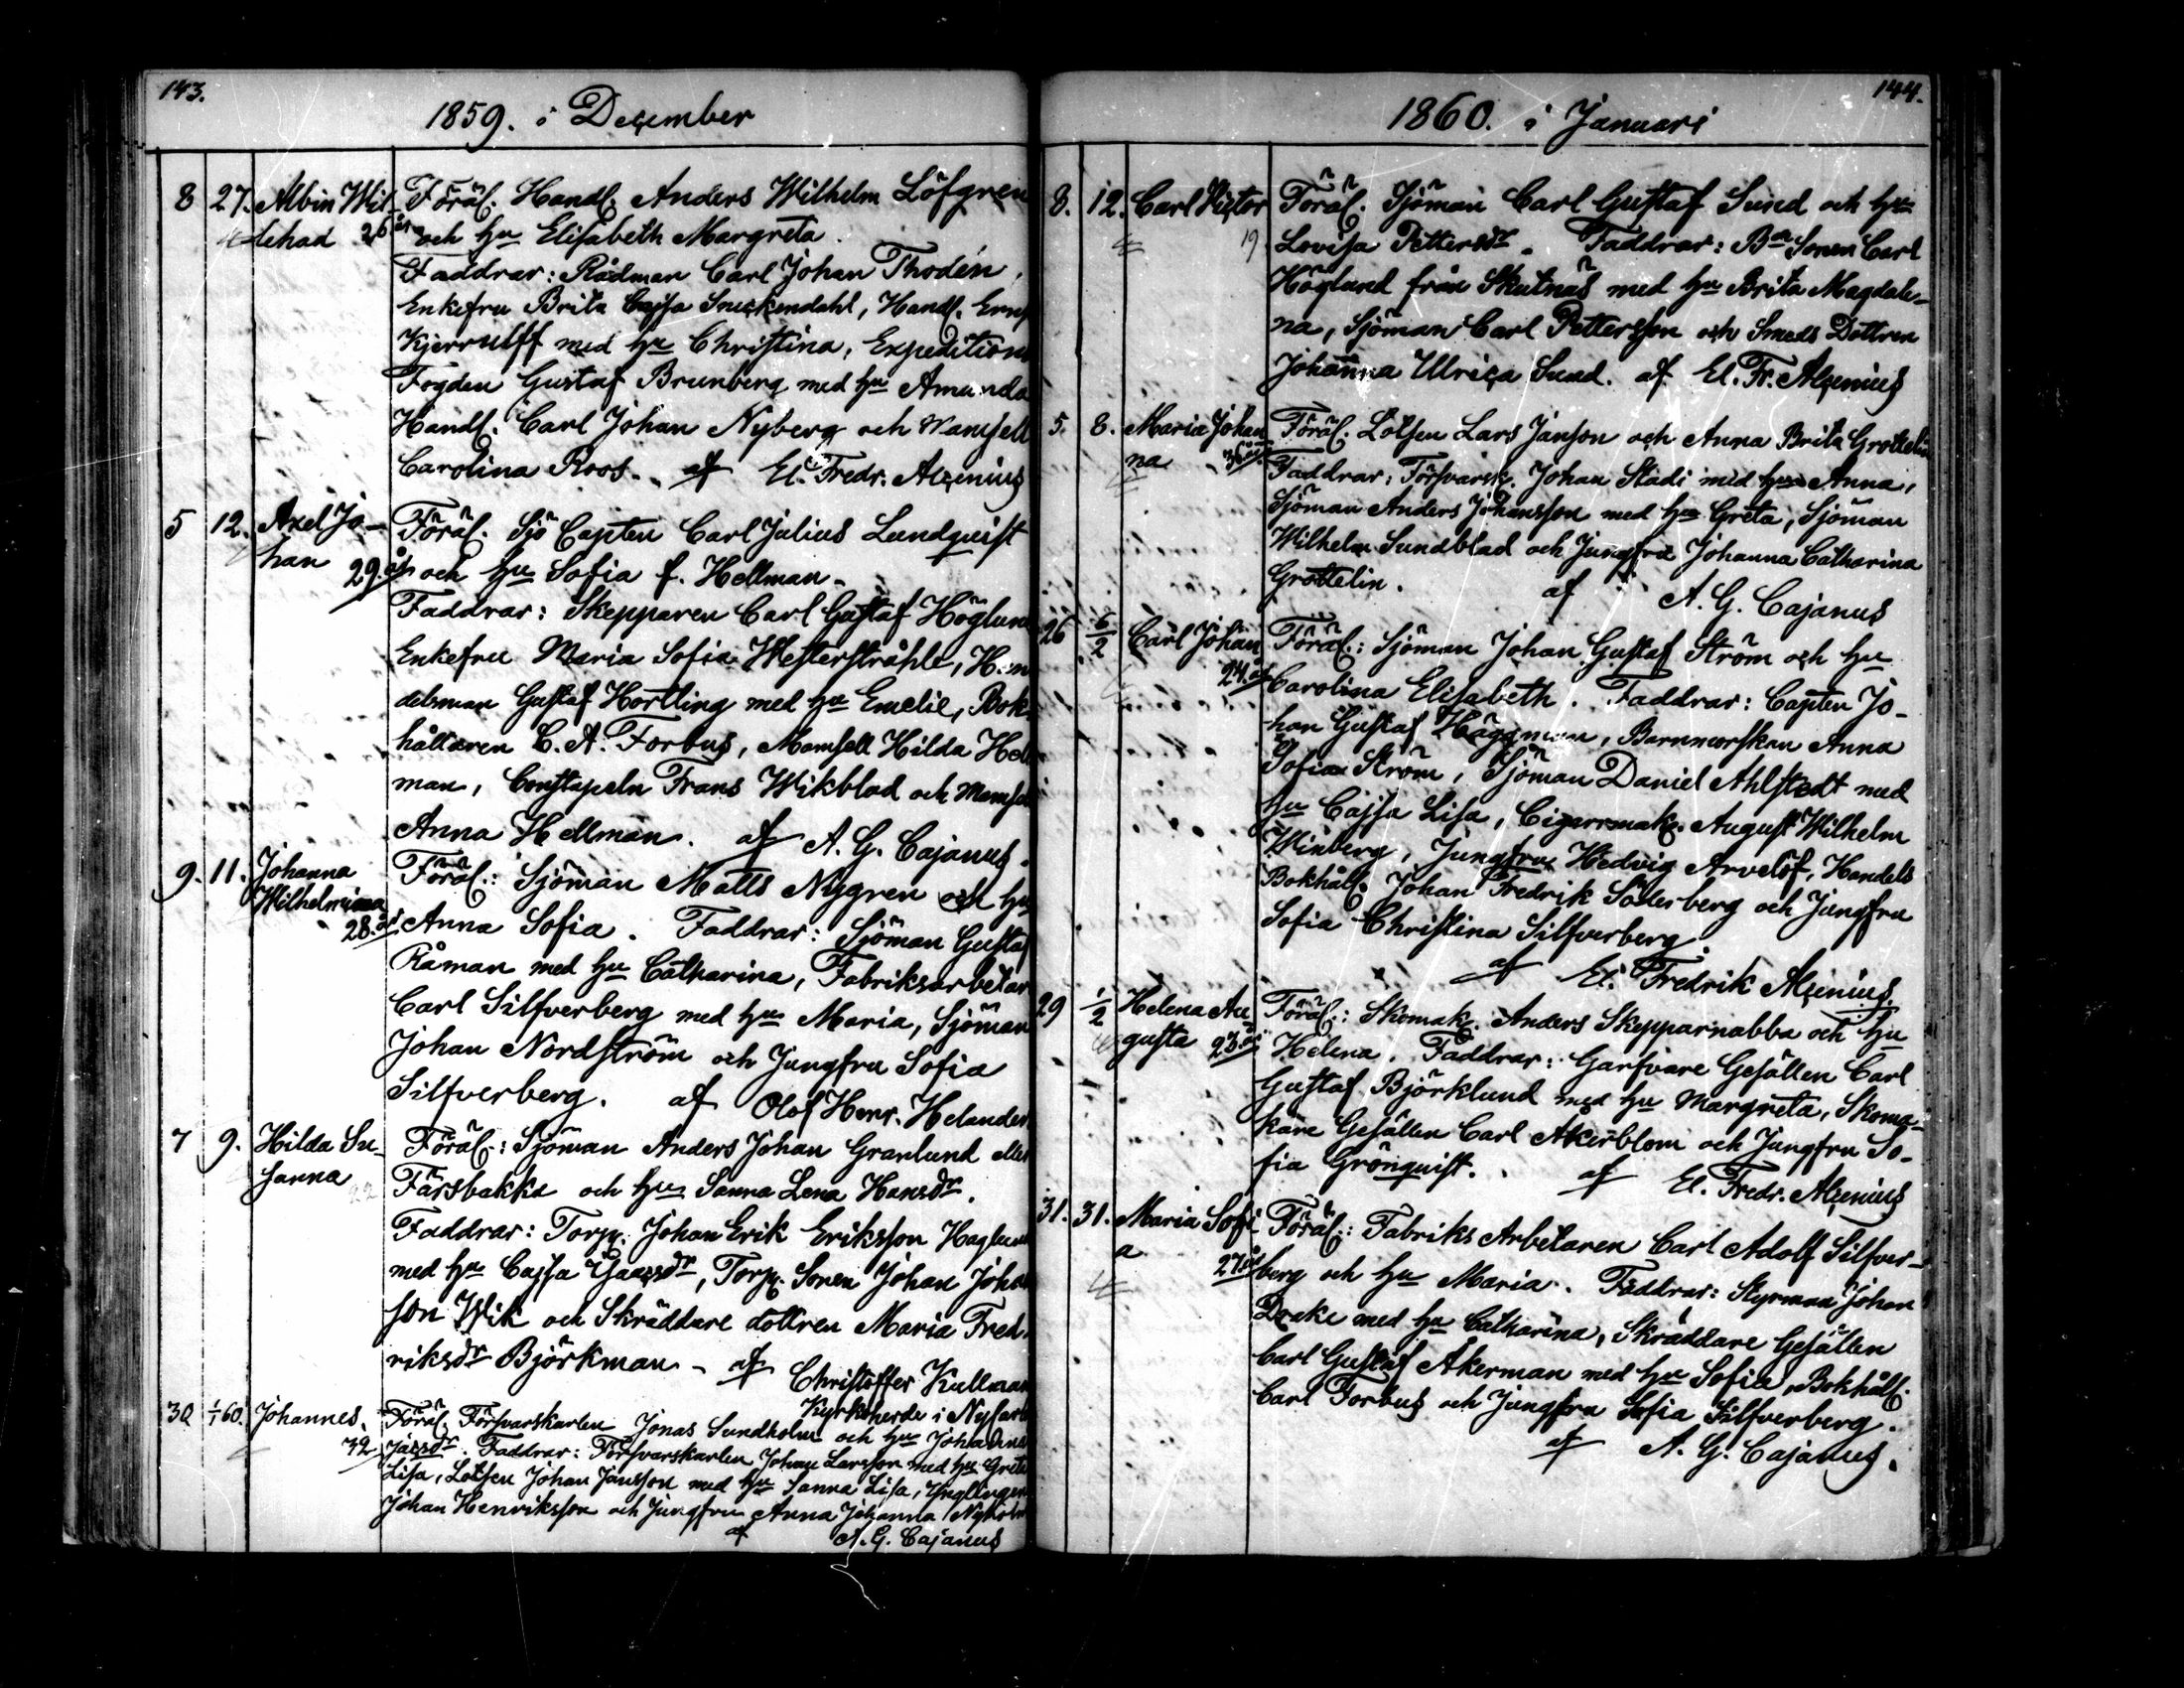 143.
1859. i December
8 27. Albin Wil- Föräl. Handl. Anders Wilhelm Löfgren
lehad 26 år och hu Elisabeth Margreta.
Faddrar: Rådman Carl Johan Thodén,
Enkefru Brita Cajsa Snickendahl, Handl. Ernst
Kjerrulff med hu Christina, Expeditions
Fogden Gustaf Brunberg med hu Amanda
Handl. Carl Johan Nyberg och Mamsell
Carolina Roos. af El. Fredr. Alcenius
5 12. Axel Jo- Föräl. Sjö Capten Carl Julius Lundquist
han 29 år och hu Sofia f. Hellman.
Faddrar: Skepparen Carl Gustaf Höglund
Enkefru Maria Sofia Westerstråhle, Han
delsman Gustaf Hortling med hu Emelie, Bok-
hållaren C. A. Forbus, Mamsell Hilda Hell
man, Constapeln Frans Wikblad och Mamsell
Anna Hellman. af A. G. Cajanus.
9. 11. Johanna Föräl.: Sjöman Matts Nygren och hu
Wilhelmina
28. år Anna Sofia. Faddrar: Sjöman Gustaf
Råman med hu Catharina, Fabriksarbetar
Carl Silfverberg med hu Maria, Sjöman
Johan Nordström och Jungfru Sofia
Silfverberg. af Olof Henr. Helander
7 9. Hilda Su- Föräl.: Sjöman Anders Johan Granlund eller
sanna Färsbakka och hu Sanna Lena Hansdr.
Faddrar: Torp. Johan Erik Eriksson Haglund
med hu Cajsa, Torp. Sonen Johan Johan
son Wik och Skräddare dottren Maria Fred-
riksdr Björkman. af Christoffer Kullman
Kyrkoherde i Nykarb
30 1/1 60. Johannes. Föräl. Försvarskarlen Jonas Sundholm och hu Johanna
32 Faddrar: Försvarskarlen Johan Larsson med hu Greta
Lisa, Lotsen Johan Jansson med hu Sanna Lisa, Ynglingen
Johan Henriksson och Jungfru Anna Johanna Nyholm
af A. G. Cajanus
144.
1860. i Januari
8. 12. Carl Victor Föräl. Sjöman Carl Gustaf Sund och hu
19. Lovisa Pettersdr. Faddrar: Bde Sonen Carl
Höglund från Skutnäs med hu Brita Magdale-
na, Sjöman Carl Pettersson och Smeds Dottren
Johanna Ulrica Sund. af El. Fr. Alcenius
5. 8. Maria Johan Föräl. Lotsen Lars Janson och Anna Brita Grottelin
na 36 år Faddrar: Försvarsk. Johan Stadi med hu Anna,
Sjöman Anders Johansson med hu Greta, Sjöman
Wilhelm Sundblad och Jungfru Johanna Catharina
Grottelin. af A. G. Cajanus
26 6/2 Carl Johan Föräl.: Sjöman Johan Gustaf Ström och hu
24. år Carolina Elisabeth. Faddrar: Capten Jo-
han Gustaf Häggman, Barnmorskan Anna
Sofia Ström, Sjöman Daniel Ahlstedt med
hu Cajsa Lisa, Cigarrmak. August Wilhelm
Winberg, Jungfru Hedvig Arvelöf, Handels
Bokhåll. Johan Fredrik Söderberg och Jungfru
Sofia Christina Silfverberg.
af El. Fredrik Alcenius.
29 1/2 Helena Au- Föräl.: Skomak. Anders Skepparnabba och hu
gusta 23 år Helena. Faddrar: Garfvare Gesällen Carl
Gustaf Björklund med hu Margreta, Skoma-
kare Gesällen Carl Åkerblom och Jungfru So-
fia Grönquist. af El. Fredr. Alcenius
31. 31. Maria Sofi- Föräl.: Fabriks Arbetaren Carl Adolf Silfver-
a 27 år berg och hu Maria. Faddrar: Styrman Johan
Drake med hu Catharina, Skräddare Gesällen
Carl Gustaf Åkerman med hu Sofia, Bokhåll.
Carl Forbus och Jungfru Sofia Silfverberg.
af A. G. Cajanus.